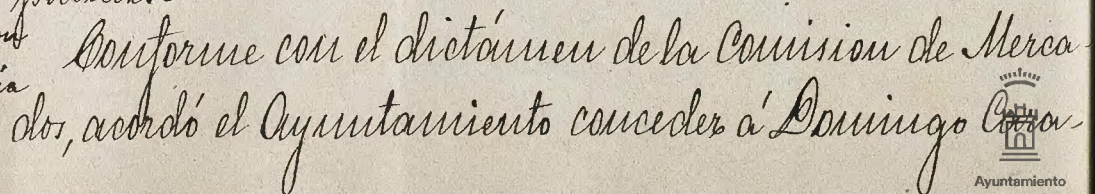 Conforme con el dictámen de la Comision de Merca-
dos, acordó el Ayuntamiento conceder á Domingo Cara-
Ayuntamiento